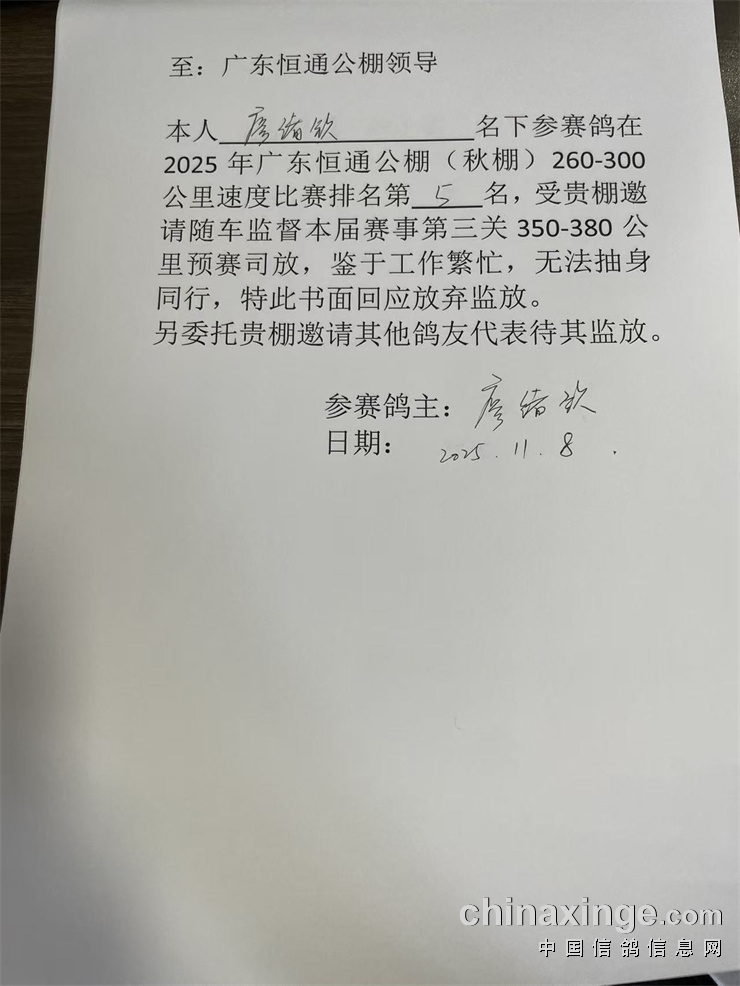 至：广东恒通公棚领导
本人廖绪钦名下参赛鸽在
2025年广东恒通公棚（秋棚）260-300
公里速度比赛排名第5名，受贵棚邀
请随车监督本届赛事第三关350-380公
里预赛司放，鉴于工作繁忙，无法抽身
同行，特此书面回应放弃监放。
另委托贵棚邀请其他鸽友代表待其监放。
参赛鸽主：廖绪钦
日期：2025.11.8.
chinaxinge.com
中国信鸽信息网